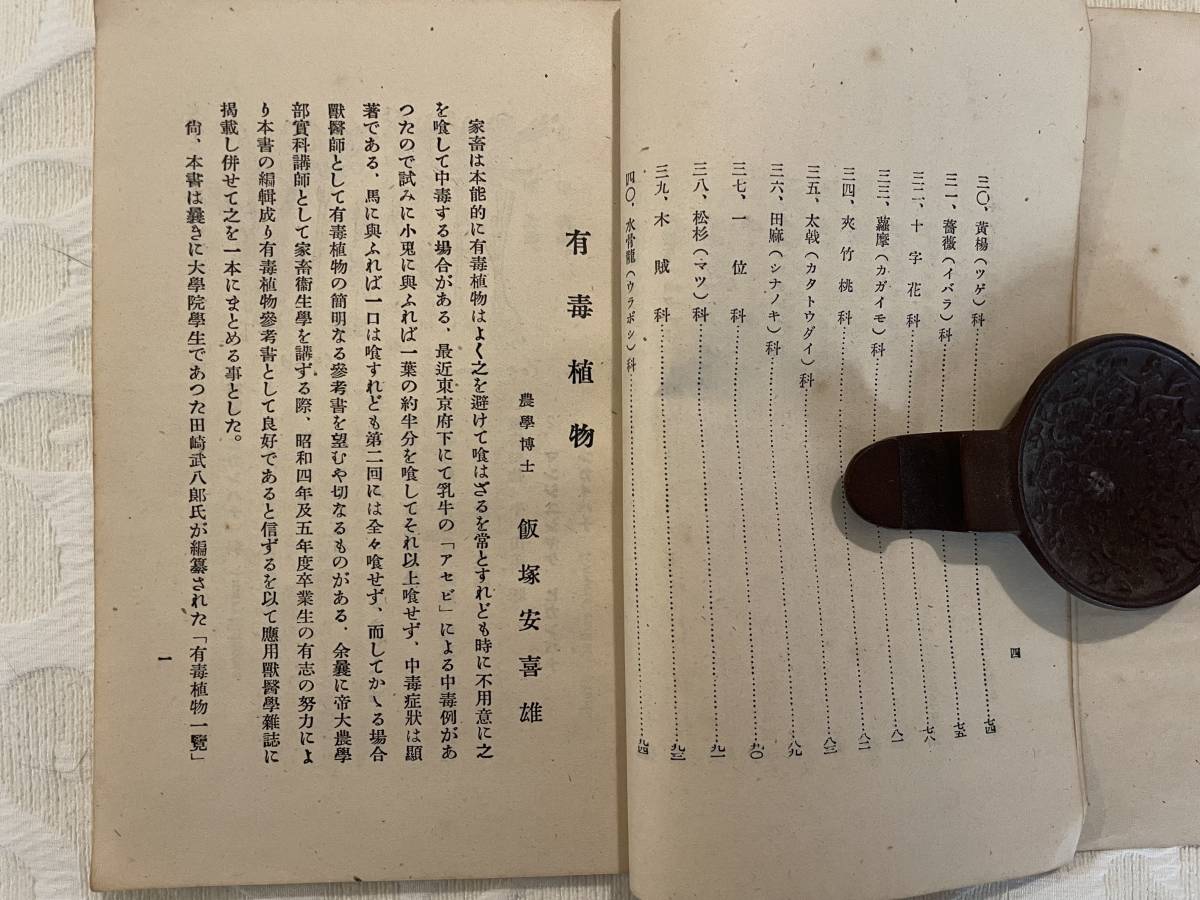 四
三〇、黄楊(ツゲ)科……………七四
三一、薔薇(イバラ)科……………七五
三二、十字花科……………七八
三三、蘿摩(カガイモ)科……………八一
三四、夾竹桃科……………八二
三五、太戟(カタトウダイ)科……………八三
三六、田麻(シナノキ)科……………八九
三七、一位科……………九〇
三八、松杉(マツ)科……………九一
三九、木賊科……………九三
四〇、水骨龍(ウラボシ)科……………九四
有毒植物
農學博士 飯塚安喜雄
家畜は本能的に有毒植物はよく之を避けて喰はざるを常とすれども時に不用意に之
を喰して中毒する場合がある、最近東京府下にて乳牛の「アセビ」による中毒例があ
つたので試みに小兎に與ふれば一葉の約半分を喰してそれ以上喰せず、中毒症狀は顯
著である、馬に與ふれば一口は喰すれども第二回には全々喰せず、而してかゝる場合
獸醫師として有毒植物の簡明なる參考書を望むや切なるものがある、余曩に帝大農學
部實科講師として家畜衞生學を講ずる際、昭和四年及五年度卒業生の有志の努力によ
り本書の編輯成り有毒植物參考書として良好であると信ずるを以て應用獸醫學雜誌に
揭載し併せて之を一本にまとめる事とした。
尙、本書は曩きに大學院學生であつた田崎武八郎氏が編纂された「有毒植物一覽」
一